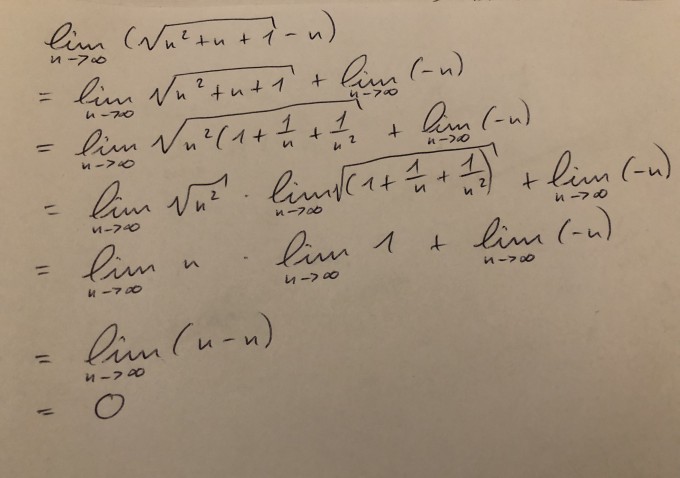 lim n→∞ (√(n² + n + 1) - n)
= lim n→∞ √(n² + n + 1) + lim n→∞ (-n)
= lim n→∞ √(n² (1 + 1/n + 1/n²) + lim n→∞ (-n)
= lim n→∞ √(n²) · lim n→∞ √((1 + 1/n + 1/n²)) + lim n→∞ (-n)
= lim n→∞ n · lim n→∞ 1 + lim n→∞ (-n)
= lim n→∞ (n - n)
= 0